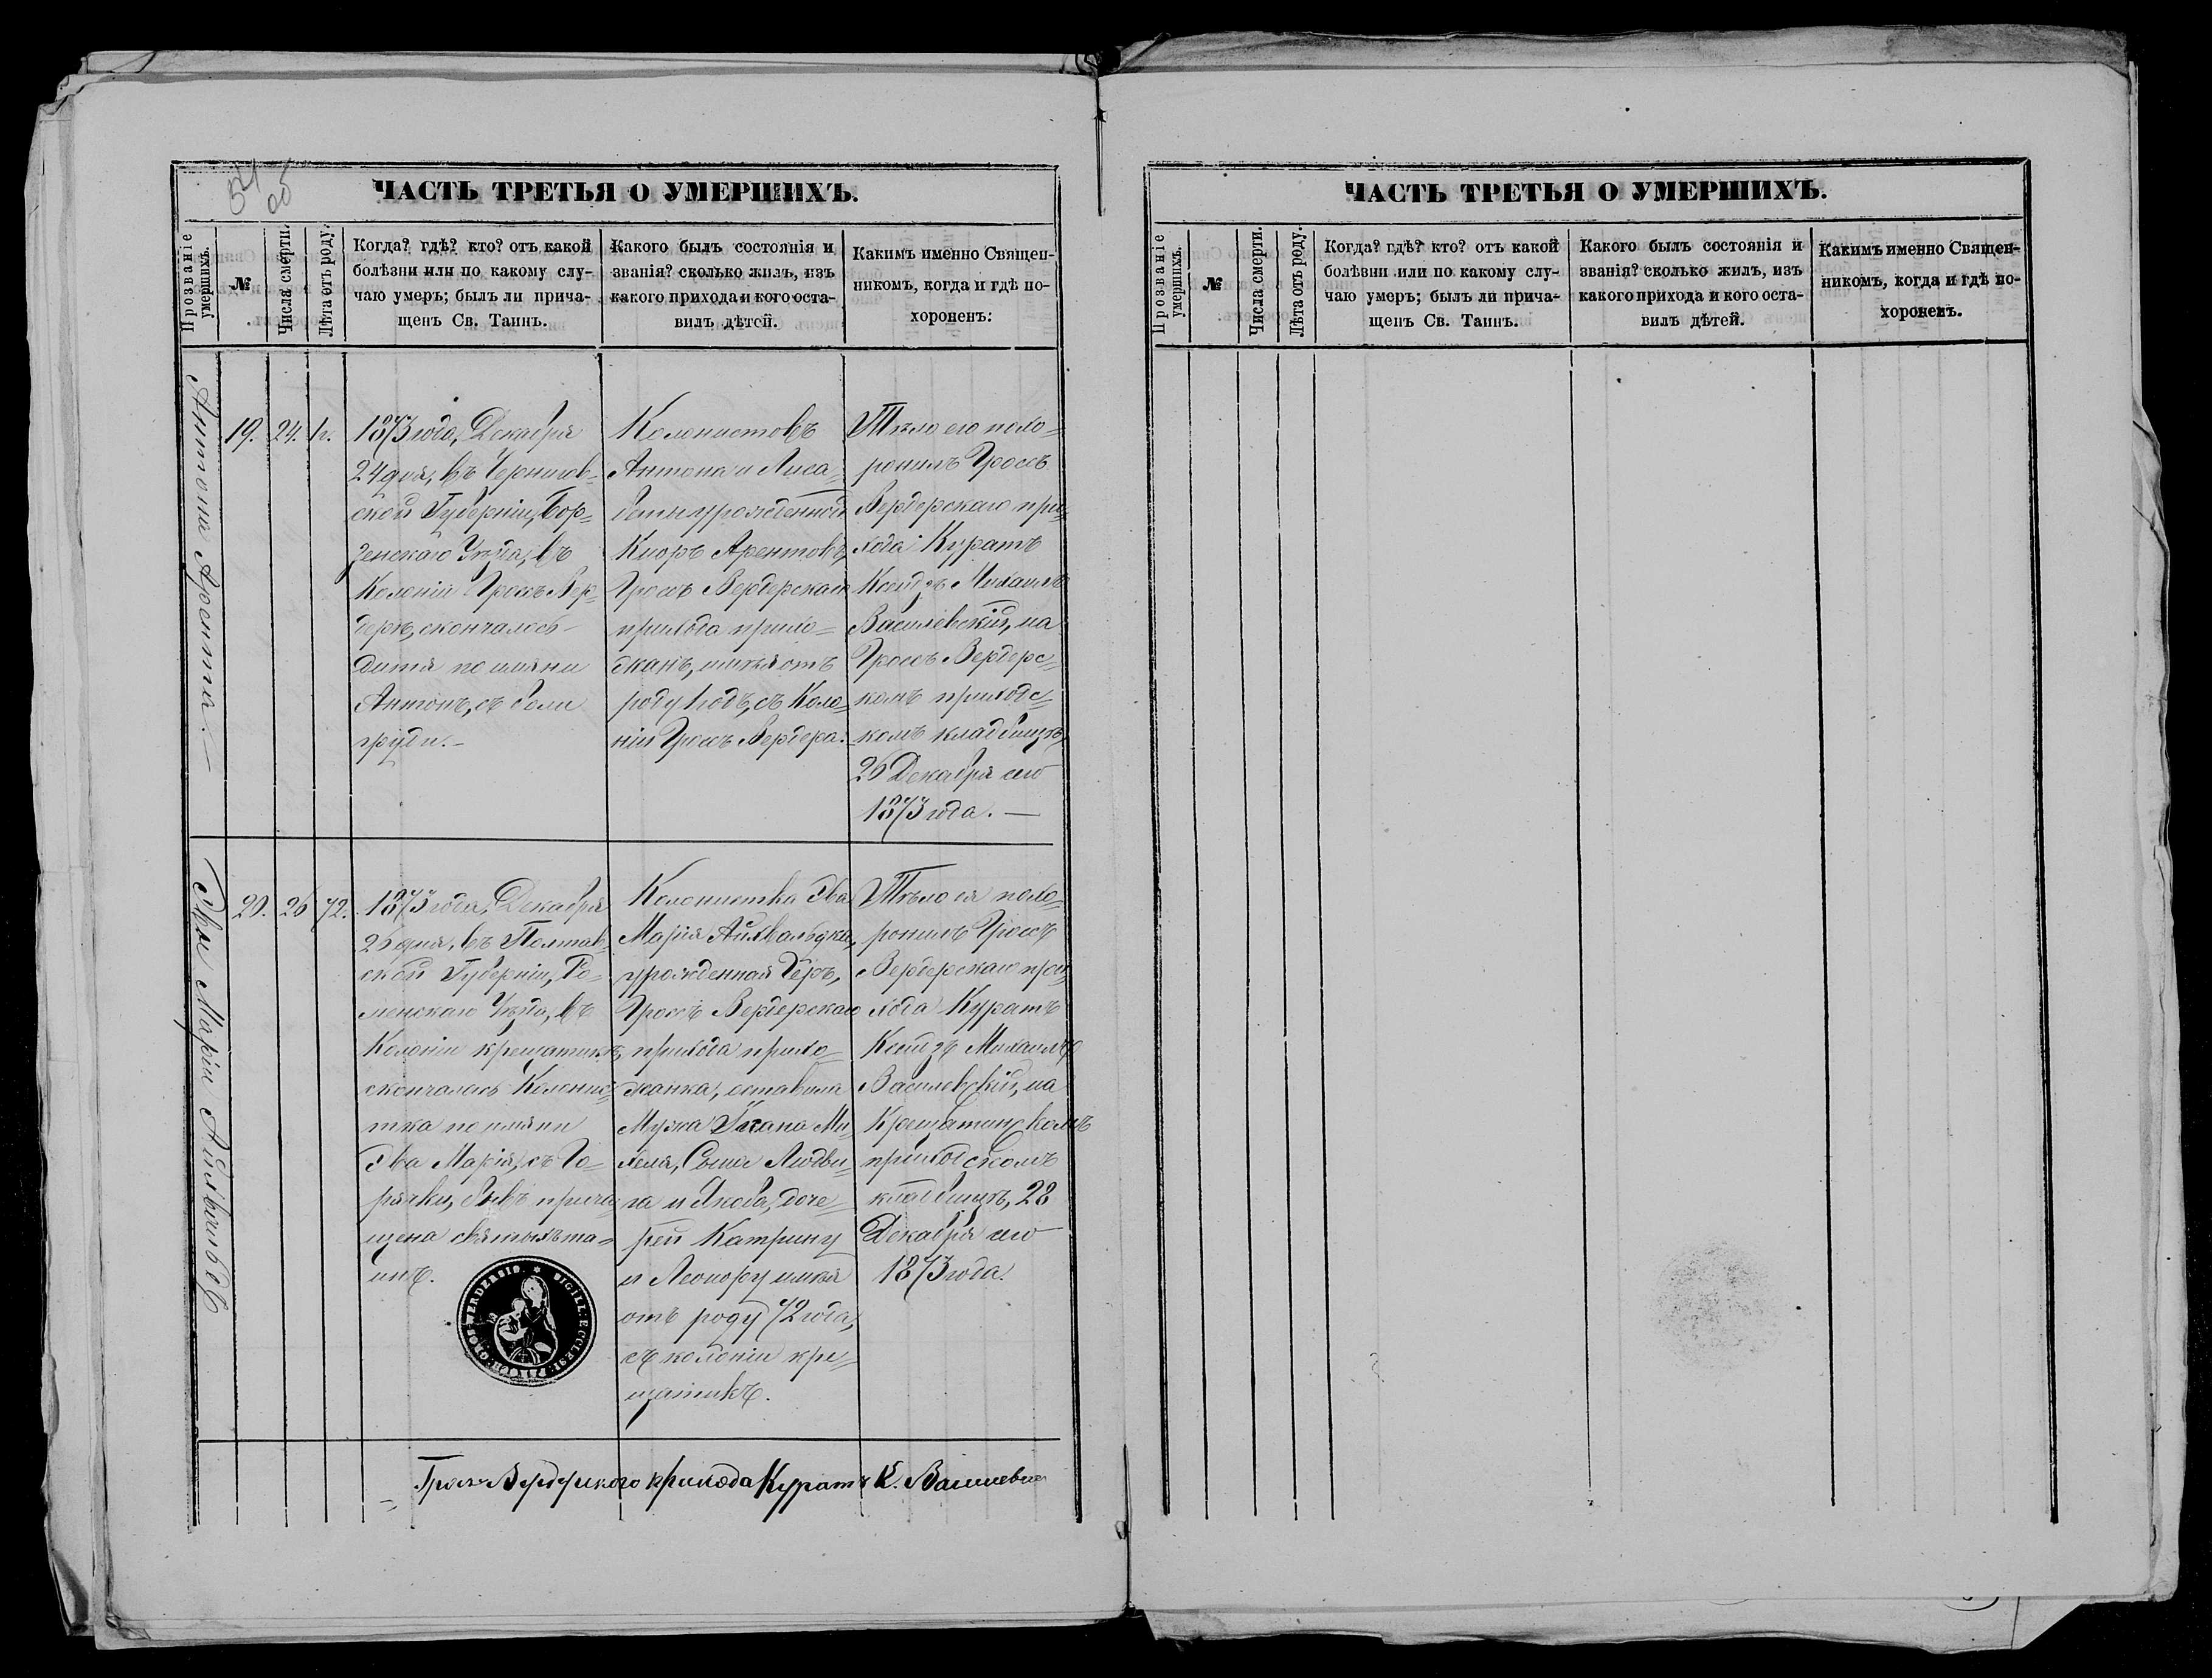 54
об
ЧАСТЬ ТРЕТЬЯ О УМЕРШИХЪ.
Прозваніе
умершихъ.
№
Числа смерти.
Лѣта отъ роду.
Когда? гдѣ? кто? отъ какой
болѣзни или по какому слу-
чаю умеръ; былъ ли прича-
щенъ Св. Таинъ.
Какого былъ состоянія и
званія? сколько жилъ, изъ
какого прихода и кого оста-
вилъ дѣтей.
Какимъ именно Священ-
никомъ, когда и гдѣ по-
хороненъ:
Антона Арентта.—
19.
24.
1г.
1873 года, Декабря
24 дня, въ Чернигов=
ской Губерніи, Бор=
зенскаго Уѣзда, въ
Колоніи Гросъ Вер=
деръ, скончалось
дитя по имяни
Антонъ, съ боли
груди.—
Колонистовъ
Антона и Лиса=
беты урожденной
Кноръ Арентовъ,
Гросъ Вердерскаго
прихода прихо=
жанъ, имѣя отъ
роду 1 годъ, съ Коло=
ніи Гросъ Вердера.
Тѣло его похо=
ронилъ Гросъ
Вердерскаго при=
хода Куратъ
Ксендзъ Михаилъ
Василевскій, на
Гросъ Вердерс=
комъ приходс=
комъ кладбищѣ,
26 Декабря сего
1873 года.—
Эвы Маріи Айхвальдъ
20.
26
72.
1873 года, Декабря
26 дня, въ Полтав=
ской Губерніи, Ро=
менскаго Уѣзда, въ
Колоніи Крещатикъ,
скончалась Колонис=
тка по имяни
Эва Марія, съ Го=
рячки, бывъ прича=
щена святыхъ та=
инъ.
Колонистка Эва
Марія Айхвальдка,
урожденная Геръ,
Гросъ Вердерскаго
прихода прихо=
жанка, оставила
Мужа Іоана Ми=
хеля, Сына Людви=
га и Якоба, доче=
рей Катрину
и Леонору имѣя
отъ роду 72 года,
съ колоніи Кре=
щатикъ.
Тѣло ея похо=
ронилъ Гросъ
Вердерскаго при=
хода Куратъ
Ксендзъ Михаилъ
Василевскій, на
Крещатинскомъ
приходскомъ
кладбищѣ, 28
Декабря сего
1873 года.
SIGILL: ECCLESI: GROS WERDERSIS. *
Гросъ Вердерского прихода Куратъ К. Василевскій
ЧАСТЬ ТРЕТЬЯ О УМЕРШИХЪ.
Прозваніе
умершихъ.
№
Числа смерти.
Лѣта отъ роду.
Когда? гдѣ? кто? отъ какой
болѣзни или по какому слу-
чаю умеръ; былъ ли прича-
щенъ Св. Таинъ.
Какого былъ состоянія и
званія? сколько жилъ, изъ
какого прихода и кого оста-
вилъ дѣтей.
Какимъ именно Священ-
никомъ, когда и гдѣ по-
хороненъ.